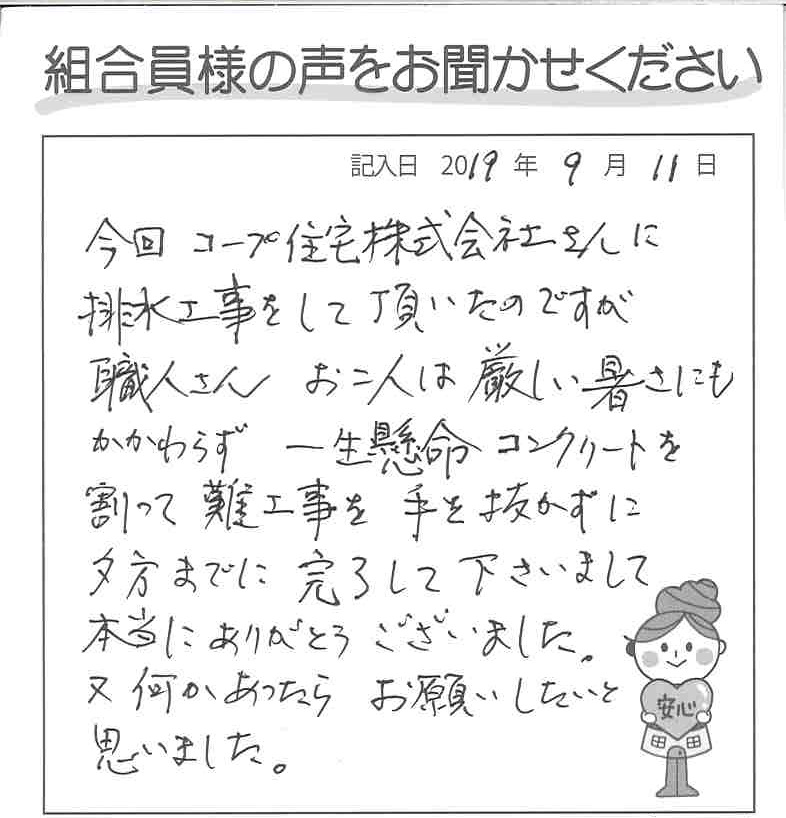 組合員様の声をお聞かせください
記入日 2019 年 9 月 11 日
今回 コープ住宅株式会社さんに
排水工事をして頂いたのですが
職人さん お二人は 厳しい暑さにも
かかわらず 一生懸命 コンクリートを
割って 難工事を 手を抜かずに
夕方までに 完了して 下さいまして
本当に ありがとう ございました。
又 何かあったら お願いしたいと
思いました。
安心